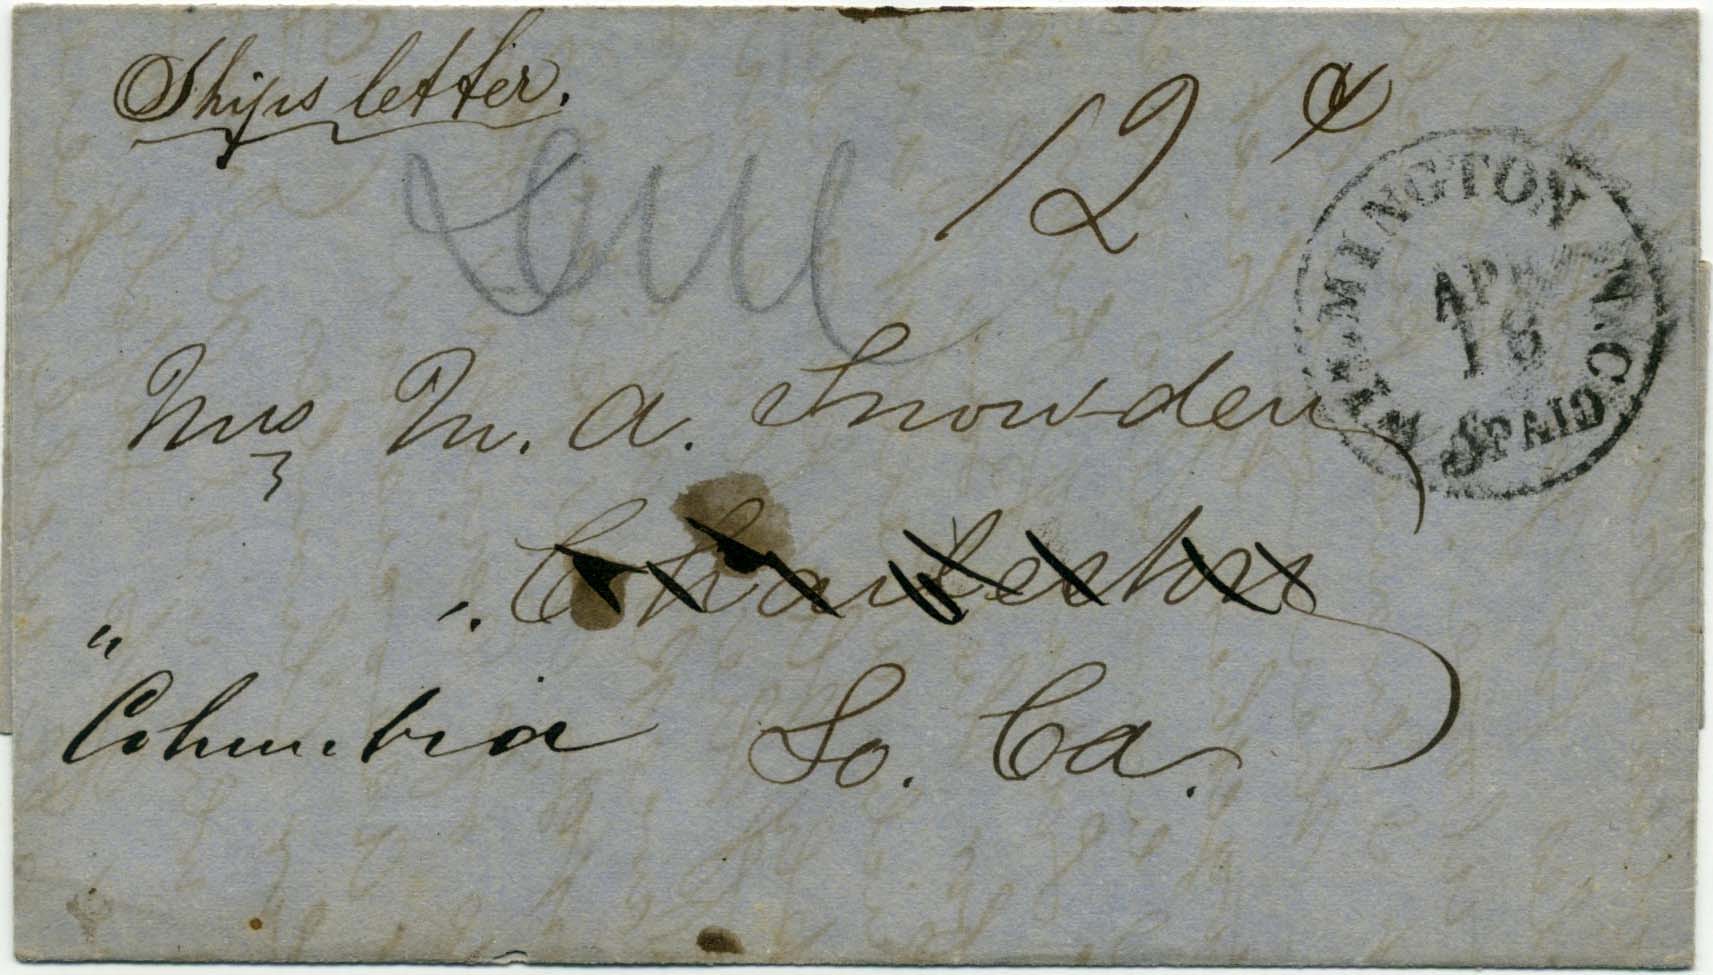 Ships letter.
12 ¢
WILMINGTON N.C.
APR
18
5 PAID
Mrs M. A. Snowden
Charleston
"Columbia So. Ca.